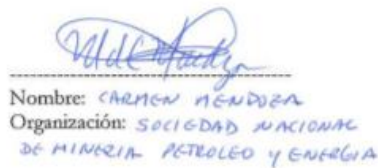 Nombre: CARMEN MENDOZA
Organización: SOCIEDAD NACIONAL
DE MINERIA PETROLEO y ENERGIA